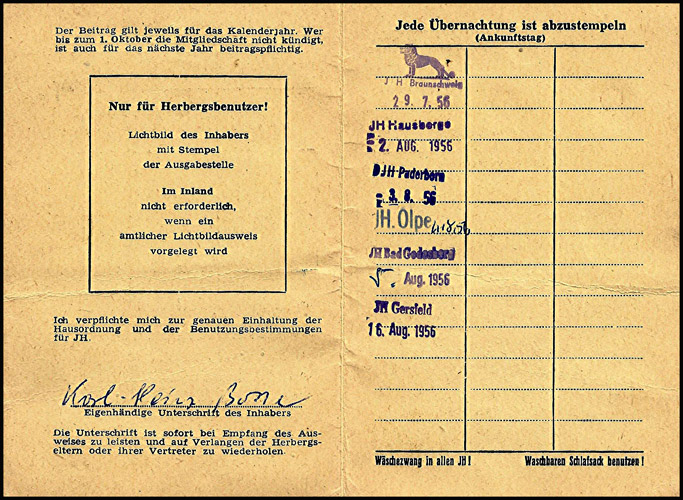 Der Beitrag gilt jeweils für das Kalenderjahr. Wer
bis zum 1. Oktober die Mitgliedschaft nicht kündigt,
ist auch für das nächste Jahr beitragspflichtig.
Nur für Herbergsbenutzer!
Lichtbild des Inhabers
mit Stempel
der Ausgabestelle
Im Inland
nicht erforderlich,
wenn ein
amtlicher Lichtbildausweis
vorgelegt wird
Ich verpflichte mich zur genauen Einhaltung der
Hausordnung und der Benutzungsbestimmungen
für JH.
Karl-Heinz Bosse
Eigenhändige Unterschrift des Inhabers
Die Unterschrift ist sofort bei Empfang des Aus-
weises zu leisten und auf Verlangen der Herbergs-
eltern oder ihrer Vertreter zu wiederholen.
Jede Übernachtung ist abzustempeln
(Ankunftstag)
JH Braunschweig
29. 7. 56
JH Hausberge
2. AUG. 1956
DJH Paderborn
3. 8. 56
JH. Olpe 4.8.56
JH Bad Godesberg
5. Aug. 1956
JH Gersfeld
16. Aug. 1956
Wäschezwang in allen JH!
Waschbaren Schlafsack benutzen!